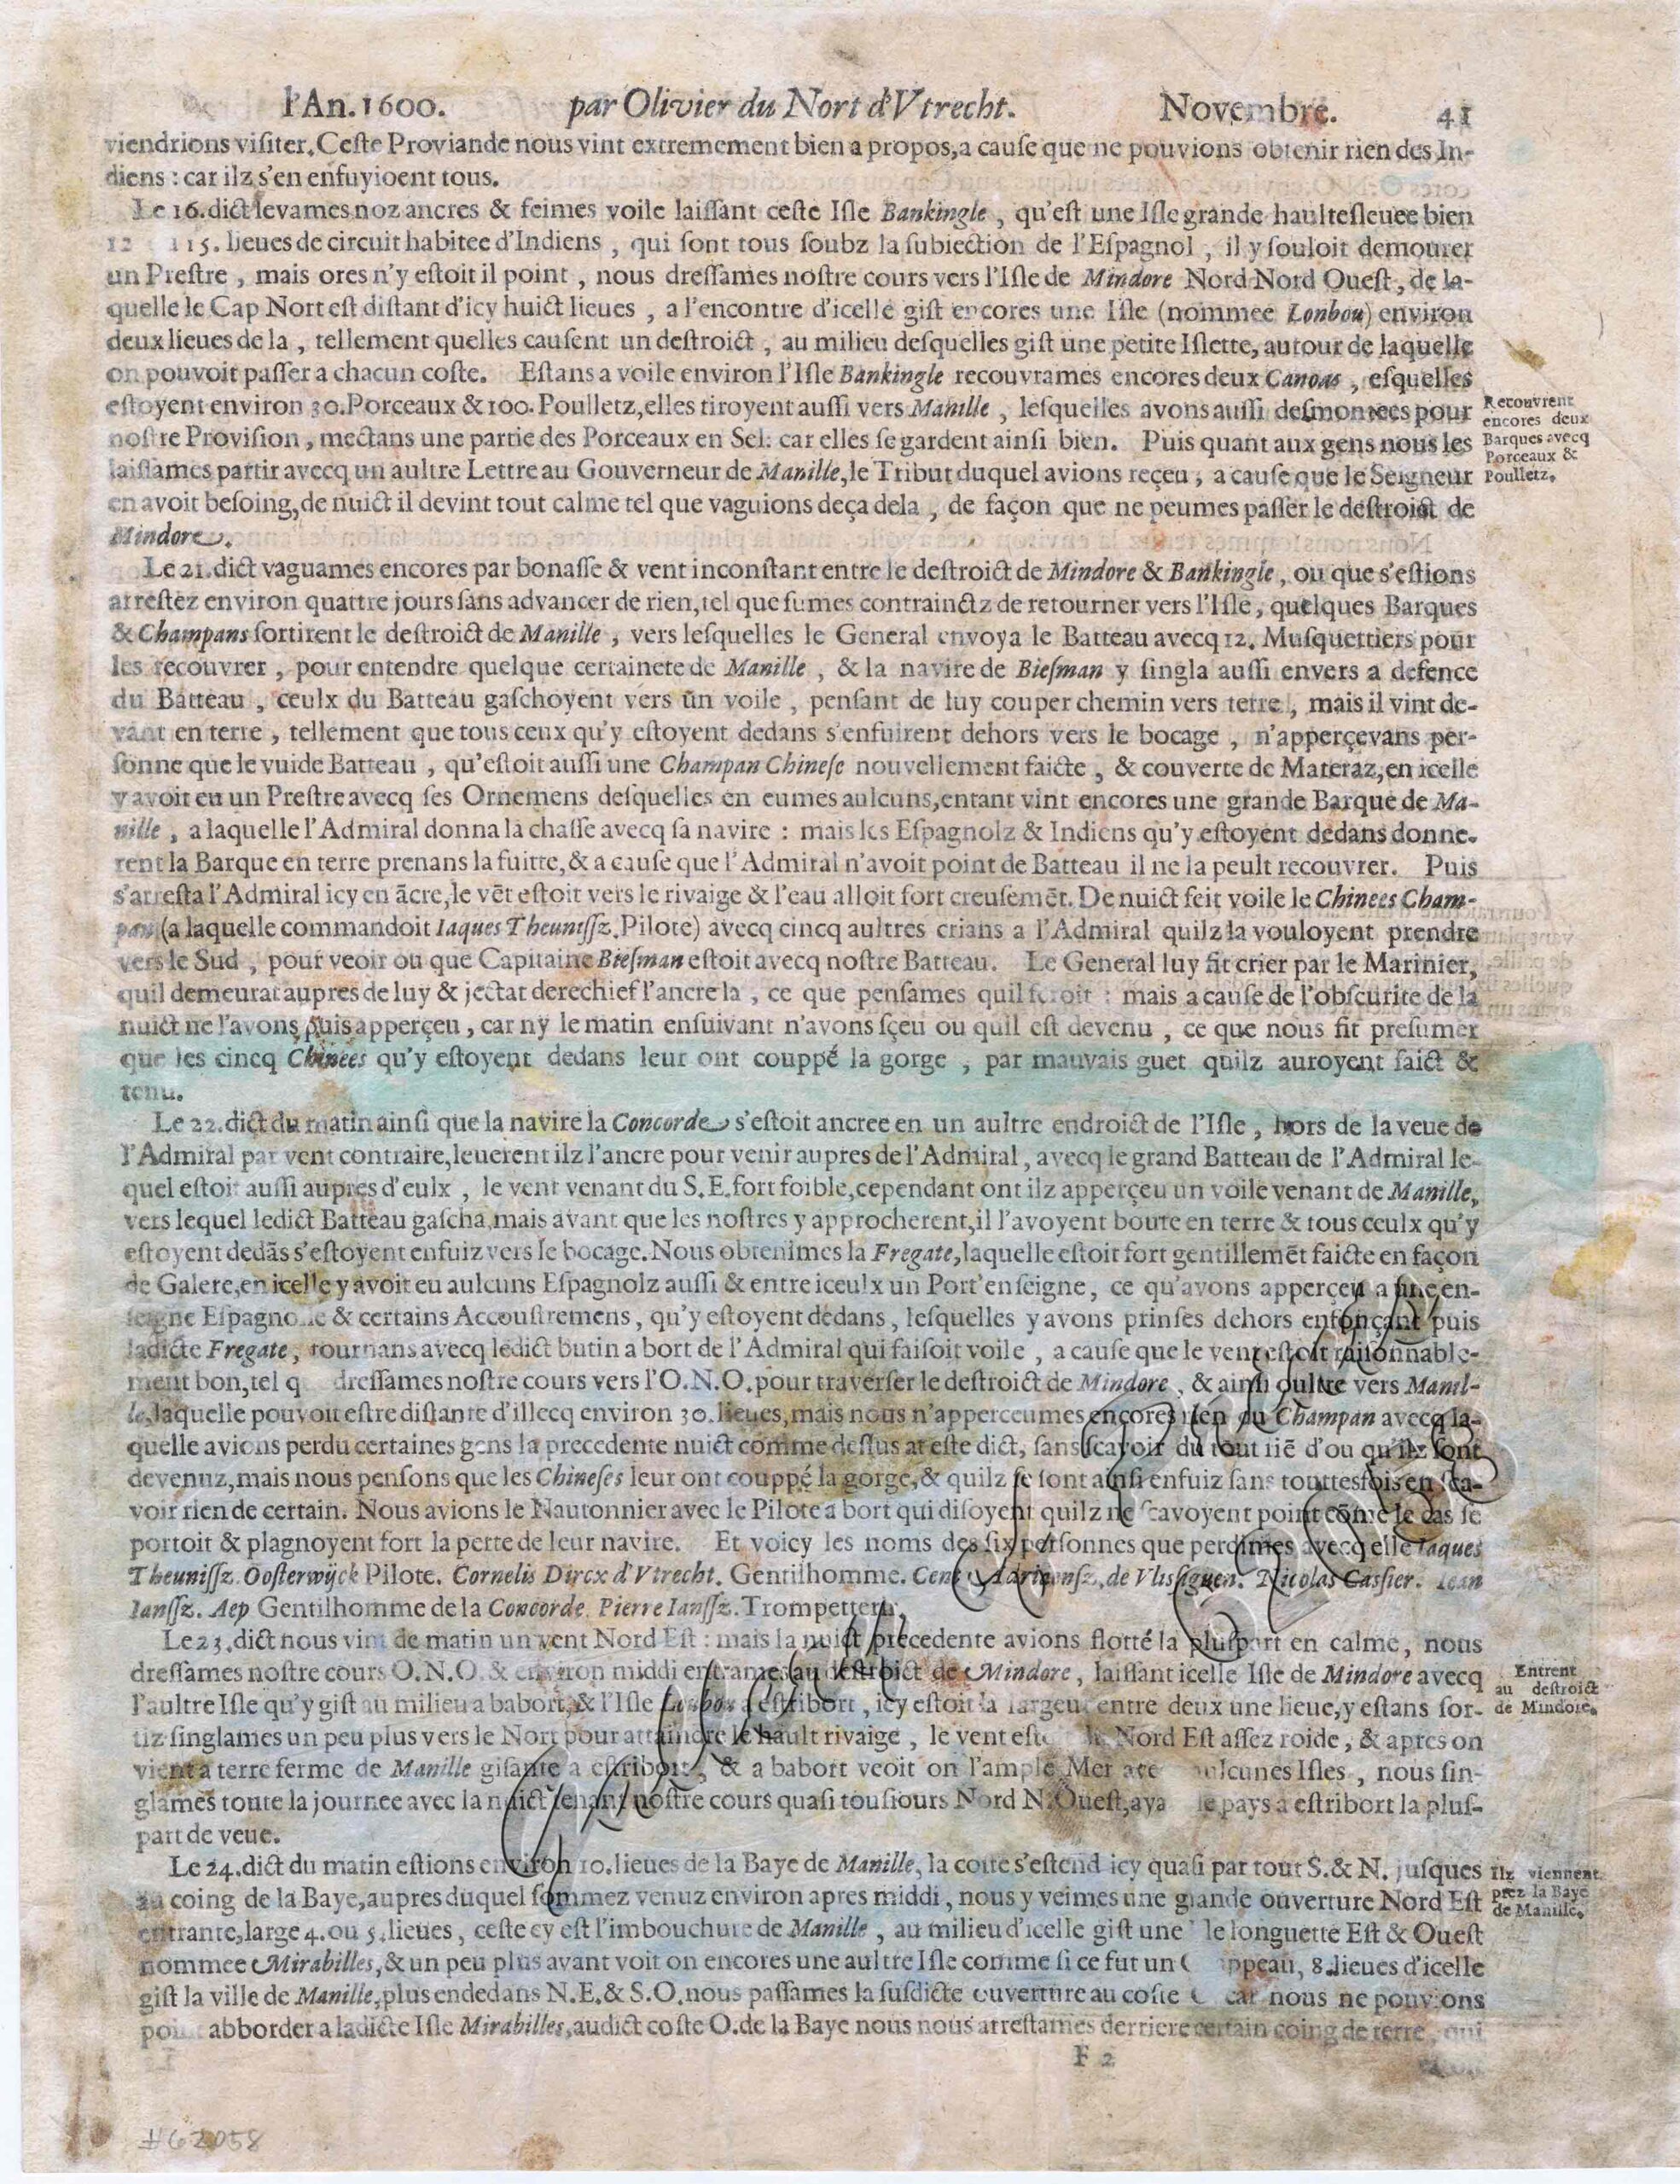 l'An. 1600. par Olivier du Nort d'Vtrecht. Novembre. 41
viendrions viſiter. Ceſte Proviande nous vint extremement bien a propos, a cauſe que ne pouvions obtenir rien des In-
diens : car ilz s'en enfuyioent tous.
Le 16. dict levames noz ancres & feimes voile laiſſant ceſte Iſle Bankingle, qu'eſt une Iſle grande haulteſleuee bien
12 115. lieues de circuit habitee d'Indiens, qui ſont tous ſoubz la ſubiection de l'Eſpagnol, il y ſouloit demourer
un Preſtre, mais ores n'y eſtoit il point, nous dreſſames noſtre cours vers l'Iſle de Mindore Nord Nord Oueſt, de la-
quelle le Cap Nort eſt diſtant d'icy huict lieues, a l'encontre d'icelle giſt encores une Iſle (nommee Lonbou) environ
deux lieues de la, tellement quelles cauſent un deſtroict, au milieu deſquelles giſt une petite Iſlette, autour de laquelle
on pouvoit paſſer a chacun coſte. Eſtans a voile environ l'Iſle Bankingle recouvrames encores deux Canoas, eſquelles
eſtoyent environ 30. Porceaux & 100. Poulletz, elles tiroyent auſſi vers Manille, leſquelles avons auſſi deſmontees pour
noſtre Proviſion, mectans une partie des Porceaux en Sel: car elles ſe gardent ainſi bien. Puis quant aux gens nous les
laiſſames partir avecq un aultre Lettre au Gouverneur de Manille, le Tribut duquel avions reçeu, a cauſe que le Seigneur
en avoit beſoing, de nuict il devint tout calme tel que vaguions deça dela, de façon que ne peumes paſſer le deſtroict de
Mindore.
Recouvrent
encores deux
Barques avecq
Porceaux &
Poulletz.
Le 21. dict vaguames encores par bonaſſe & vent inconſtant entre le deſtroict de Mindore & Bankingle, ou que s'eſtions
arreſtez environ quattre jours ſans advancer de rien, tel que fumes contrainctz de retourner vers l'Iſle, quelques Barques
& Champans ſortirent le deſtroict de Manille, vers leſquelles le General envoya le Batteau avecq 12. Muſquettiers pour
les recouvrer, pour entendre quelque certainete de Manille, & la navire de Bieſman y ſingla auſſi envers a defence
du Batteau, ceulx du Batteau gaſchoyent vers ūn voile, penſant de luy couper chemin vers terre, mais il vint de-
vant en terre, tellement que tous ceux qu'y eſtoyent dedans s'enfuirent dehors vers le bocage, n'apperçevans per-
ſonne que le vuide Batteau, qu'eſtoit auſſi une Champan Chineſe nouvellement faicte, & couverte de Materaz, en icelle
y avoit eu un Preſtre avecq ſes Ornemens deſquelles en eumes aulcuns, entant vint encores une grande Barque de Ma-
nille, a laquelle l'Admiral donna la chaſſe avecq ſa navire : mais les Eſpagnolz & Indiens qu'y eſtoyent dedans donne-
rent la Barque en terre prenans la fuitte, & a cauſe que l'Admiral n'avoit point de Batteau il ne la peult recouvrer. Puis
s'arreſta l'Admiral icy en ācre, le vēt eſtoit vers le rivaige & l'eau alloit fort creuſemēt. De nuict feit voile le Chinees Cham-
pan (a laquelle commandoit Iaques Theuniſſz. Pilote) avecq cincq aultres crians a l'Admiral quilz la vouloyent prendre
vers le Sud, pour veoir ou que Capitaine Bieſman eſtoit avecq noſtre Batteau. Le General luy fit crier par le Marinier,
quil demeurat aupres de luy & jectat derechief l'ancre la, ce que penſames quil feroit : mais a cauſe de l'obſcurite de la
nuict ne l'avons puis apperçeu, car ny le matin enſuivant n'avons ſçeu ou quil eſt devenu, ce que nous fit preſumer
que les cincq Chinees qu'y eſtoyent dedans leur ont couppé la gorge, par mauvais guet quilz auroyent faict &
tenu.
Le 22. dict du matin ainſi que la navire la Concorde s'eſtoit ancree en un aultre endroict de l'Iſle, hors de la veue de
l'Admiral par vent contraire, leuerent ilz l'ancre pour venir aupres de l'Admiral, avecq le grand Batteau de l'Admiral le-
quel eſtoit auſſi aupres d'eulx, le vent venant du S.E. fort foible, cependant ont ilz apperçeu un voile venant de Manille,
vers lequel ledict Batteau gaſcha, mais avant que les noſtres y approcherent, il l'avoyent boute en terre & tous ceulx qu'y
eſtoyent dedās s'eſtoyent enfuiz vers le bocage. Nous obtenimes la Fregate, laquelle eſtoit fort gentillemēt faicte en façon
de Galere, en icelle y avoit eu aulcuns Eſpagnolz auſſi & entre iceulx un Port'enſeigne, ce qu'avons apperçeu a une en-
ſeigne Eſpagnolle & certains Accouſtremens, qu'y eſtoyent dedans, leſquelles y avons prinſes dehors enfonçant puis
ladicte Fregate, tournans avecq ledict butin a bort de l'Admiral qui faiſoit voile, a cauſe que le vent eſtoit raiſonnable-
ment bon, tel q dreſſames noſtre cours vers l'O.N.O. pour traverſer le deſtroict de Mindore, & ainſi oultre vers Manil-
le, laquelle pouvoit eſtre diſtante d'illecq environ 30. lieues, mais nous n'apperceumes encores rien du Champan avecq la-
quelle avions perdu certaines gens la precedente nuict comme deſſus at eſte dict, ſans ſcavoir du tout riē d'ou qu'ilz ſont
devenuz, mais nous penſons que les Chineſes leur ont couppé la gorge, & quilz ſe ſont ainſi enfuiz ſans touttesfois en ſca-
voir rien de certain. Nous avions le Nautonnier avec le Pilote a bort qui diſoyent quilz ne ſcavoyent point cōme le cas ſe
portoit & plagnoyent fort la perte de leur navire. Et voicy les noms des ſix perſonnes que perdimes avecq elle Iaques
Theuniſſz. Ooſterwijck Pilote. Cornelis Dircx d'Vtrecht. Gentilhomme. de Vliſſiguen. Nicolas Caſſier. Iean
Ianſſz. Aep Gentilhomme de la Concorde. Pierre Ianſſz. Trompetter.
Le 23. dict nous vint de matin un vent Nord Eſt : mais la nuict precedente avions flotté la pluſpart en calme, nous
dreſſames noſtre cours O.N.O. & environ middi entrames au deſtroict de Mindore, laiſſant icelle Iſle de Mindore avecq
l'aultre Iſle qu'y giſt au milieu a babort, & l'Iſle Lonbou a eſtribort, icy eſtoit la largeur entre deux une lieue, y eſtans ſor-
tiz ſinglames un peu plus vers le Nort pour attaindre le hault rivaige, le vent eſto Nord Eſt aſſez roide, & apres on
vient a terre ferme de Manille giſante a eſtribort, & a babort veoit on l'ample Mer aulcunes Iſles, nous ſin-
glames toute la journee avec la nuict tenant noſtre cours quaſi touſiours Nord N. Oueſt, aya le pays a eſtribort la pluſ-
part de veue.
Entrent
au deſtroict
de Mindore.
Le 24. dict du matin eſtions environ 10. lieues de la Baye de Manille, la coſte s'eſtend icy quaſi par tout S. & N. juſques
au coing de la Baye, aupres duquel ſommez venuz environ apres middi, nous y veimes une grande ouverture Nord Eſt
entrante, large 4. ou 5. lieues, ceſte cy eſt l'imbouchure de Manille, au milieu d'icelle giſt une le longuette Eſt & Oueſt
nommee Mirabilles, & un peu plus avant voit on encores une aultre Iſle comme ſi ce fut un ppeau, 8. lieues d'icelle
giſt la ville de Manille, plus endedans N.E. & S.O. nous paſſames la ſuſdicte ouverture au coſte car nous ne pouvions
point abborder a ladicte Iſle Mirabilles, audict coſte O. de la Baye nous nous arreſtames derriere certain coing de terre, qui
Ilz viennent
prez la Baye
de Manille.
F 2
#62058